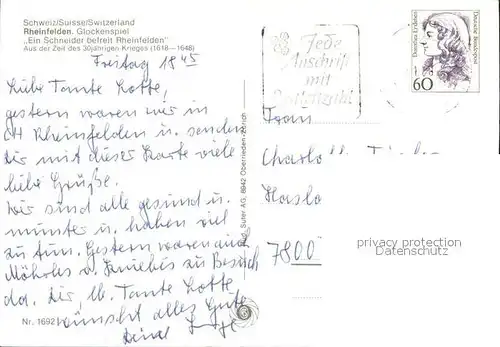 Schweiz/Suisse/Switzerland
Rheinfelden. Glockenspiel
„Ein Schneider befreit Rheinfelden"
Aus der Zeit des 30jährigen Krieges (1618–1648)
Freitag 18 45
Liebe Tante Lotte,
gestern waren wir in
CH Rheinfelden u. senden
Dir mit dieser Karte viele
liebe Grüße.
Wir sind alle gesund u.
munter u. haben viel
zu tun. Gestern waren auch
zu Besuch
da. Dir, lb. Tante Lotte
wünscht alles Gute
Nr. 1692
Suter AG, 8942 Oberrieden-Zürich
Jede
Anschrift
mit
Postleitzahl
Deutsche Bundespost
60
Frau
7800
privacy protection
Datenschutz